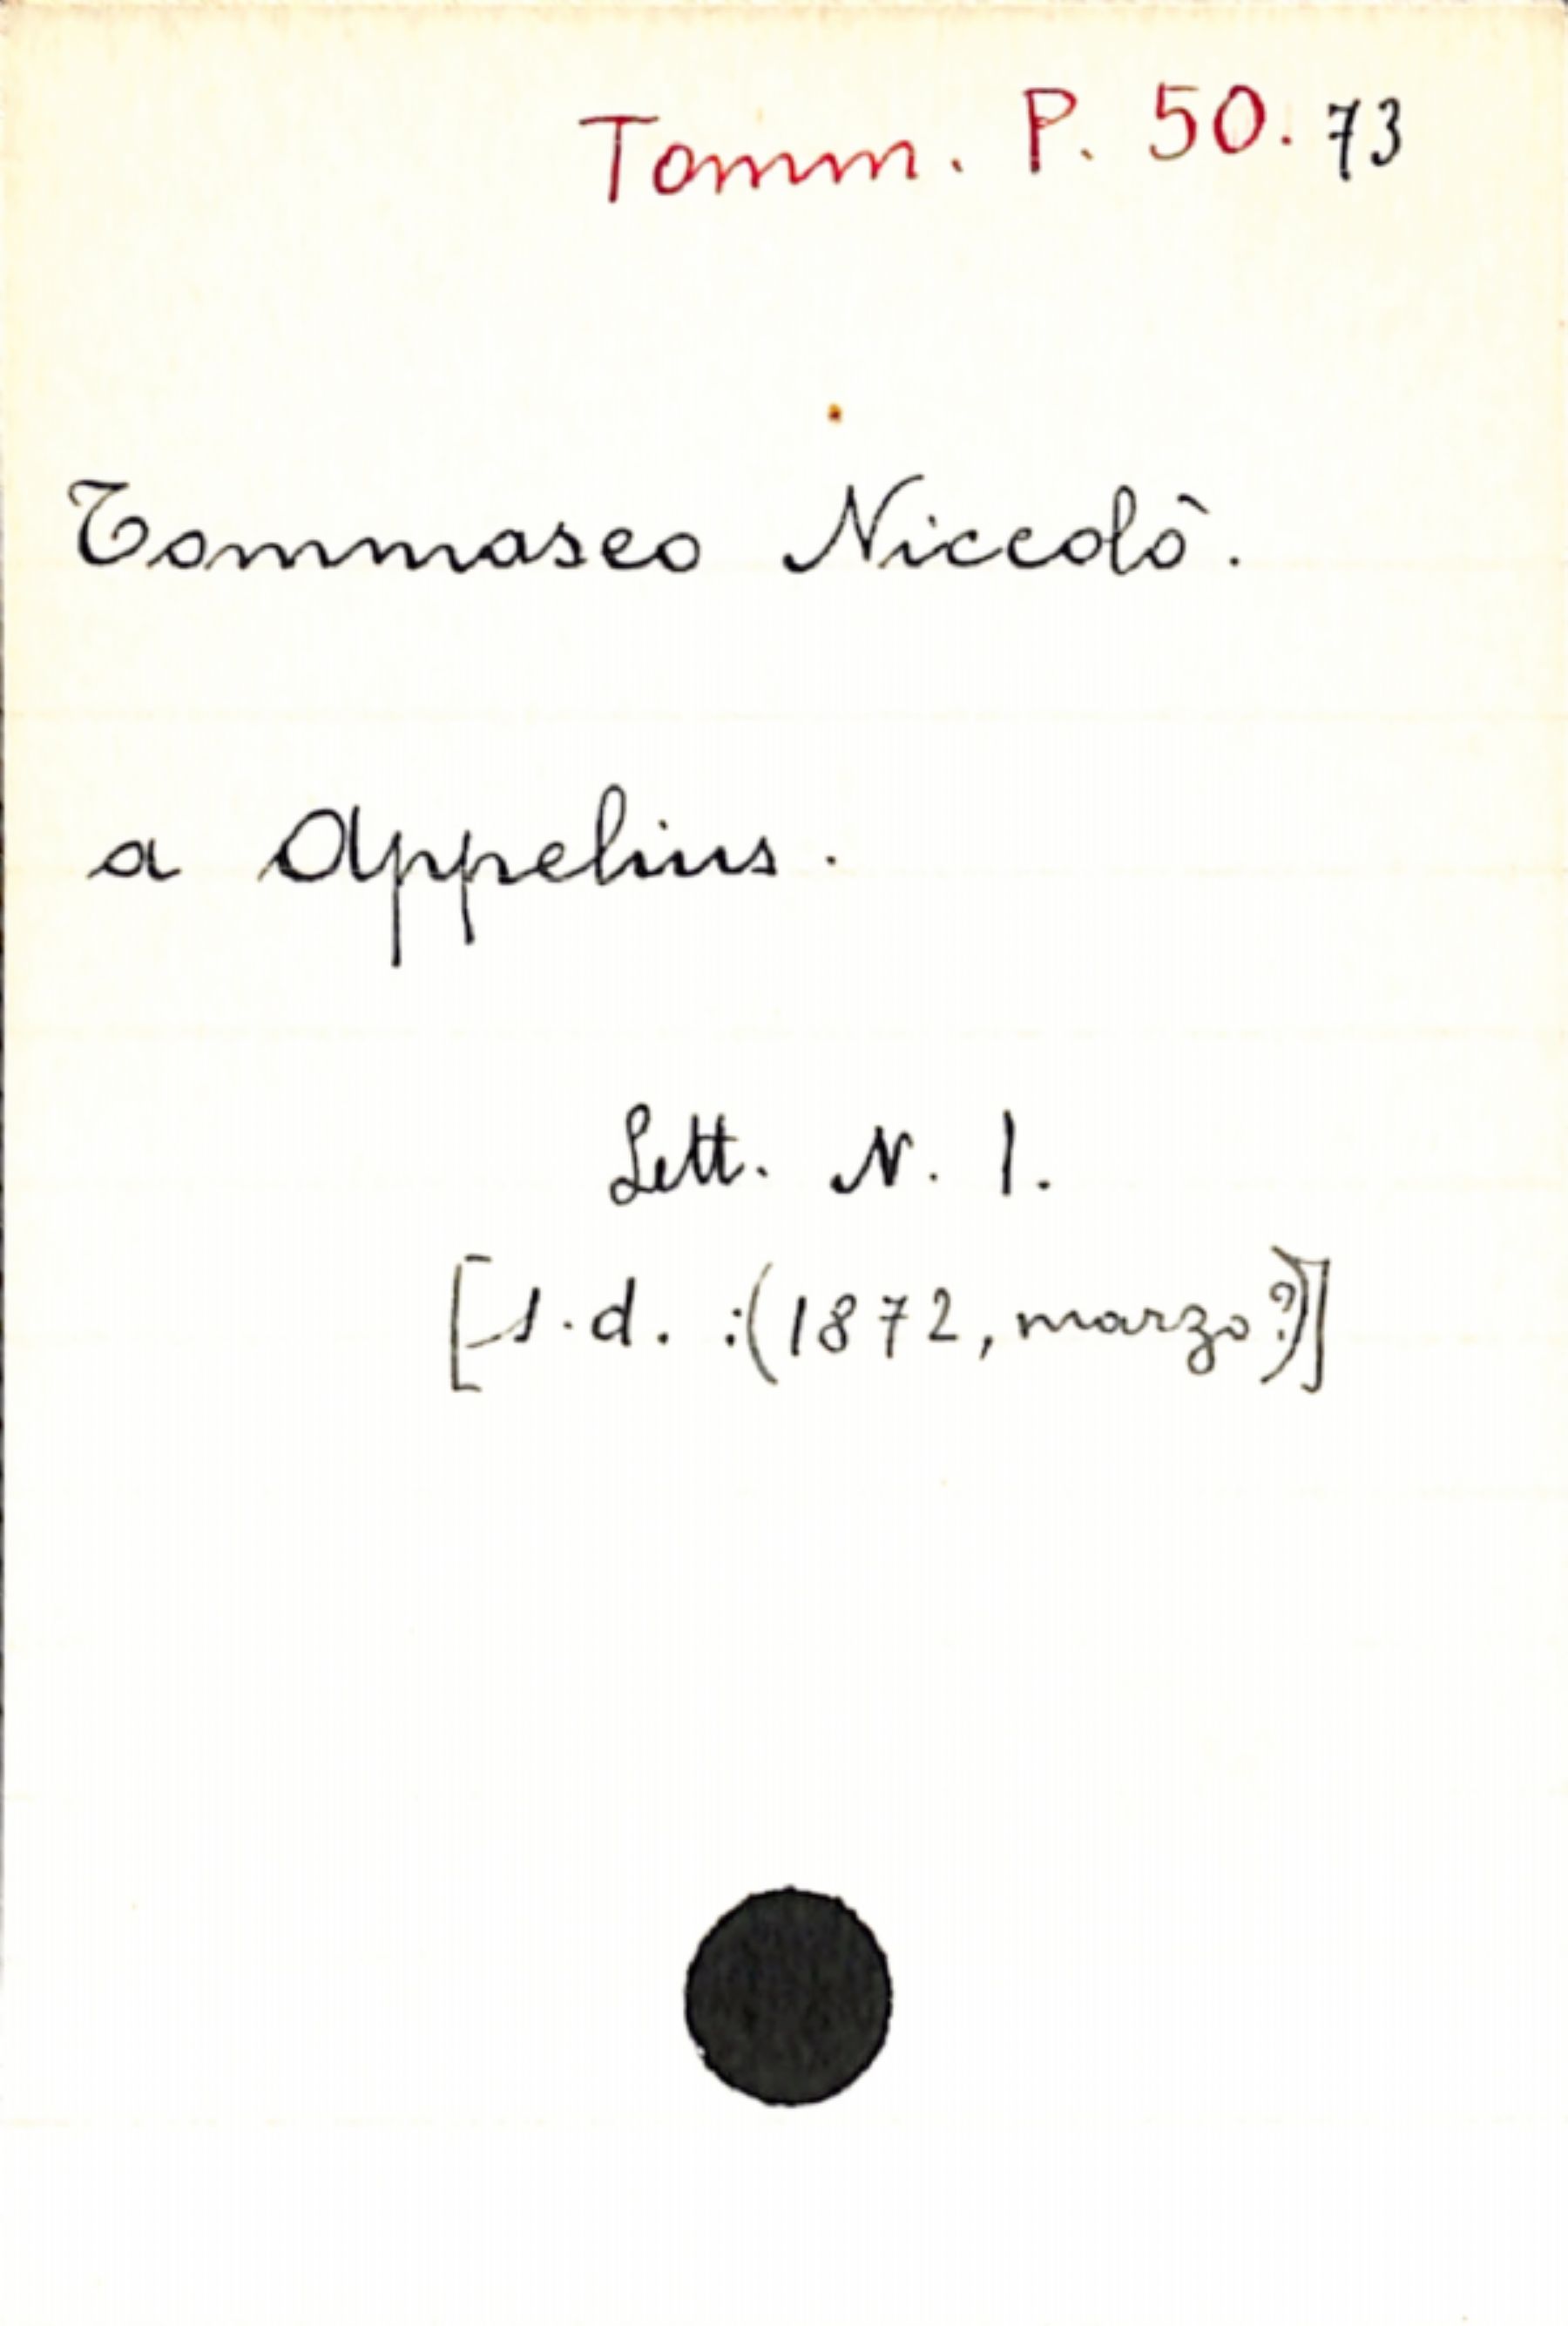 Tomm. P. 50. 73
Tommaseo Niccolò.
a Appelius.
Lett. N. 1.
[s.d. :(1872, marzo?)]